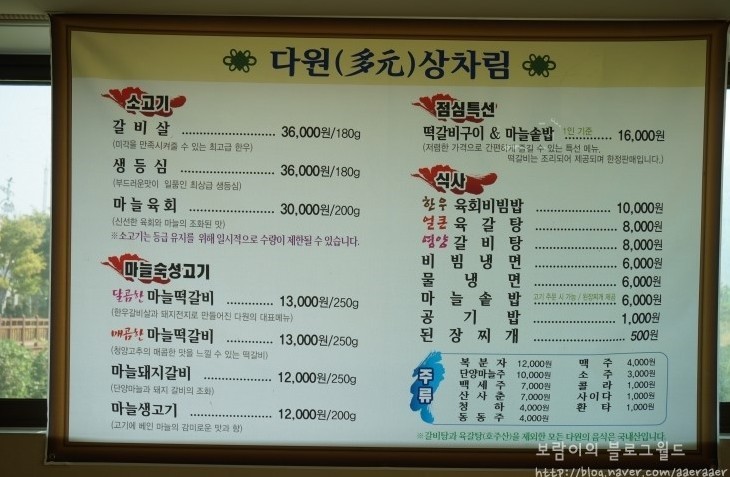 다원(多元)상차림
소고기
갈비살 ............ 36,000원/180g
(미각을 만족시켜줄 수 있는 최고급 한우)
생등심 ............ 36,000원/180g
(부드러운맛이 일품인 최상급 생등심)
마늘육회 ............ 30,000원/200g
(신선한 육회와 마늘의 조화된 맛)
※소고기는 등급 유지를 위해 일시적으로 수량이 제한될 수 있습니다.
마늘숙성고기
달콤한 마늘떡갈비 ............ 13,000원/250g
(한우갈비살과 돼지전지로 만들어진 다원의 대표메뉴)
매콤한 마늘떡갈비 ............ 13,000원/250g
(청양고추의 매콤한 맛을 느낄 수 있는 떡갈비)
마늘돼지갈비 ............ 12,000원/250g
(단양마늘과 돼지 갈비의 조화)
마늘생고기 ............ 12,000원/200g
(고기에 베인 마늘의 감미로운 맛과 향)
점심특선
떡갈비구이 & 마늘솥밥 1인 기준 ...... 16,000원
(저렴한 가격으로 간편하게 즐길 수 있는 특선 메뉴,
떡갈비는 조리되어 제공되며 한정판매입니다.)
식사
한우 육회비빔밥 ............ 10,000원
얼큰 육갈탕 ............ 8,000원
영양 갈비탕 ............ 8,000원
비빔냉면 ............ 6,000원
물냉면 ............ 6,000원
마늘솥밥 고기 주문 시 가능 / 된장찌개 제공 6,000원
공기밥 ............ 1,000원
된장찌개 ............ 500원
주류
복분자 12,000원 맥주 4,000원
단양마늘주 10,000원 소주 3,000원
백세주 7,000원 콜라 1,000원
산사춘 7,000원 사이다 1,000원
청하 4,000원 환타 1,000원
동동주 4,000원
※갈비탕과 육갈탕(호주산)을 제외한 모든 다원의 음식은 국내산입니다.
보람이의 블로그월드
http://blog.naver.com/aaeraaer